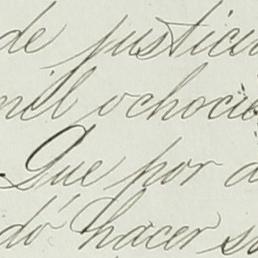 de justicia
mil ochocie
Que por d
dó hacer s